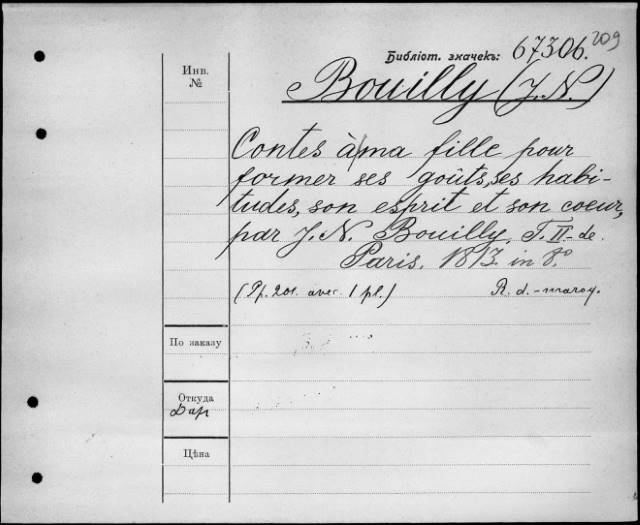 209
Библіот. значекъ: 67306.
Инв.
№
Bouilly (J. N.)
Contes à ma fille pour
former ses goûts, ses habi-
tudes, son esprit et son coeur,
par J. N. Bouilly. T. II-de.
Paris. 1813. in 8.°
(Pp. 201. avec 1 pl.) R. d.-maroq.
По заказу
Откуда
Дар
Цѣна